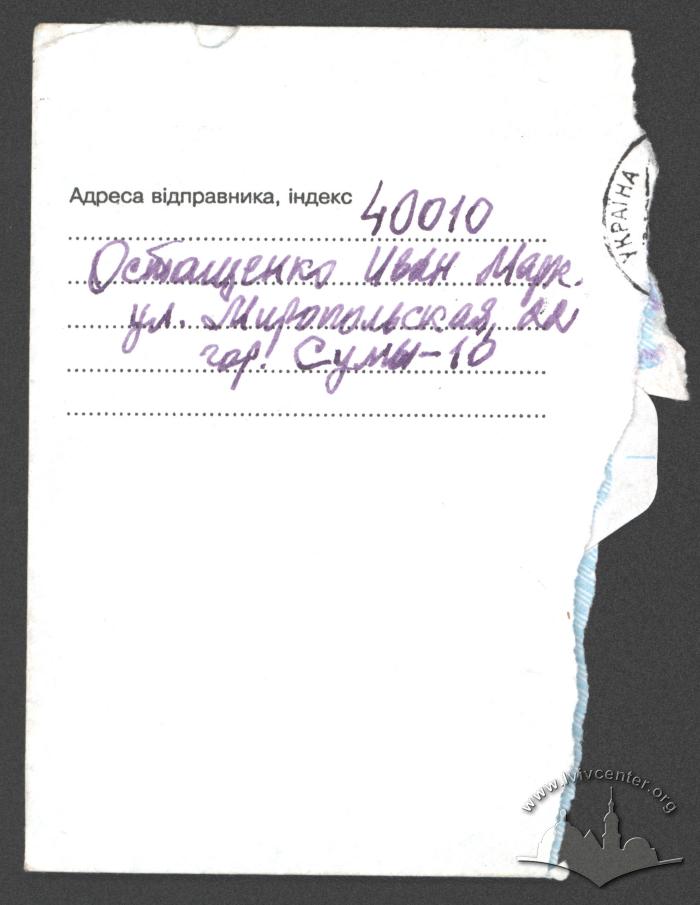 Адреса відправника, індекс 40010
Осташенко Иван Марк.
ул. Миропольская, 22
гор. Сумы-10
УКРАЇНА
www.lvivcenter.org